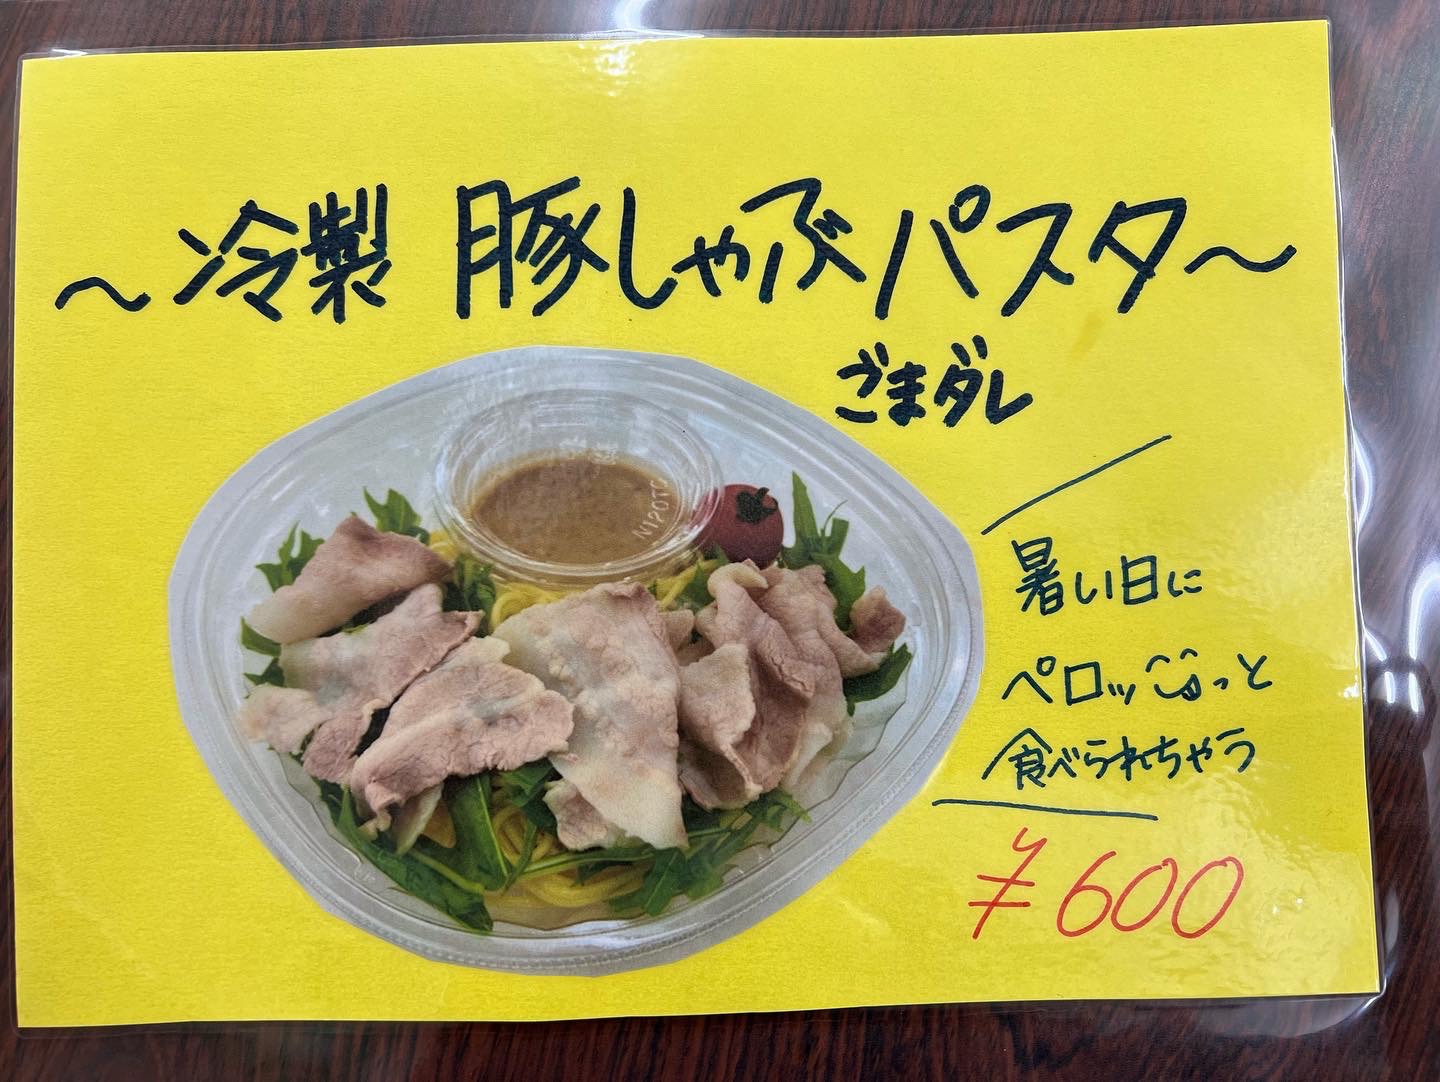 ～冷製 豚しゃぶパスタ～
ごまダレ
暑い日に
ペロッっと
食べられちゃう
¥600
N120TC